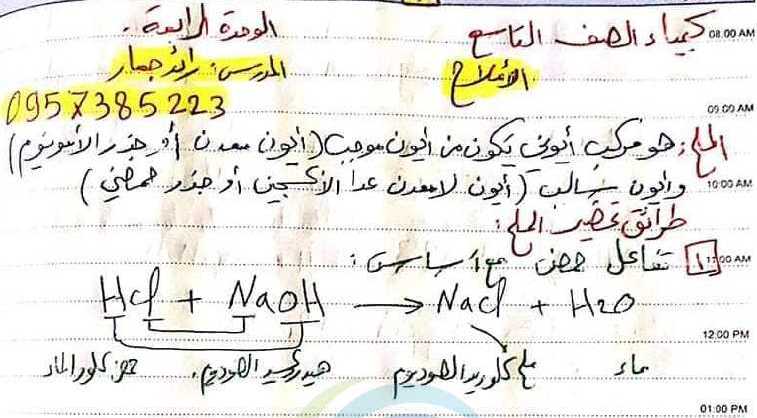 كيمياء الصف التاسع الوحدة الرابعة.
08.00 AM
الأملاح المدرس: رائد جمار
0957385223
09.00 AM
الملح: هو مركب أيوني يتكون من أيون موجب (أيون معدن أو جذر الأمونيوم)
وأيون سالب (أيون لا معدن عدا الأكسجين أو جذر حمضي)
10:00 AM
طرائق تحضير الملح:
1 تفاعل حمض مع أساس:
11:00 AM
HCl + NaOH → NaCl + H2O
12:00 PM
حمض كلور الماء هيدروكسيد الصوديوم. ملح كلوريد الصوديوم ماء
01:00 PM